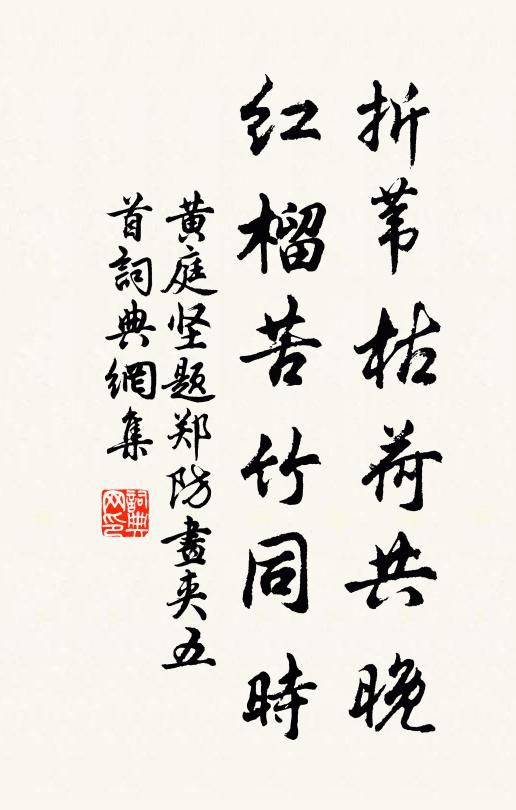 折苇枯荷共晚
红榴苦竹同時
黄庭坚题郑防畫夹五
首詞典網集
詞典
网印